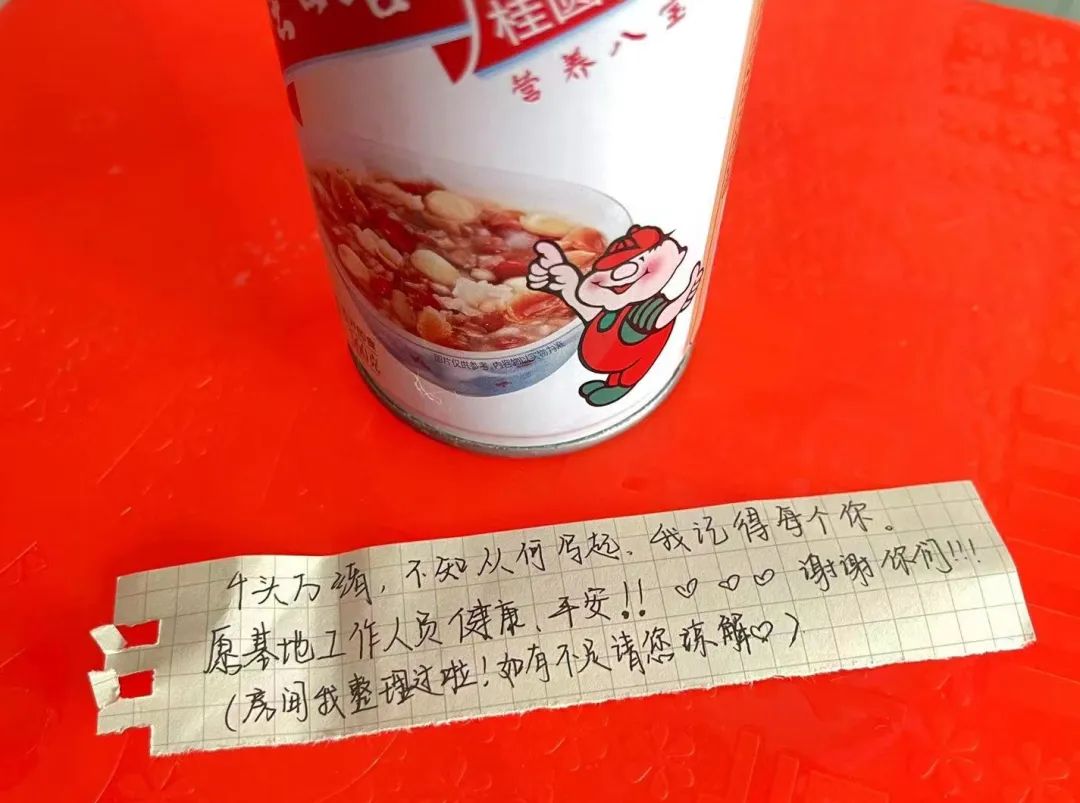 桂圆
营养八宝
图片仅供参考,内容物以实物为准
千头万绪,不知从何写起、我记得每个你。
原基地工作人员健康、平安!! ♡ ♡ ♡ 谢谢你们!!!
(房间我整理过啦!如有不足请您谅解♡)